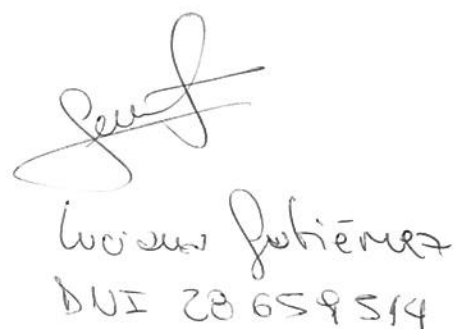 Luciano Gutiérrez
DNI 28 659 514